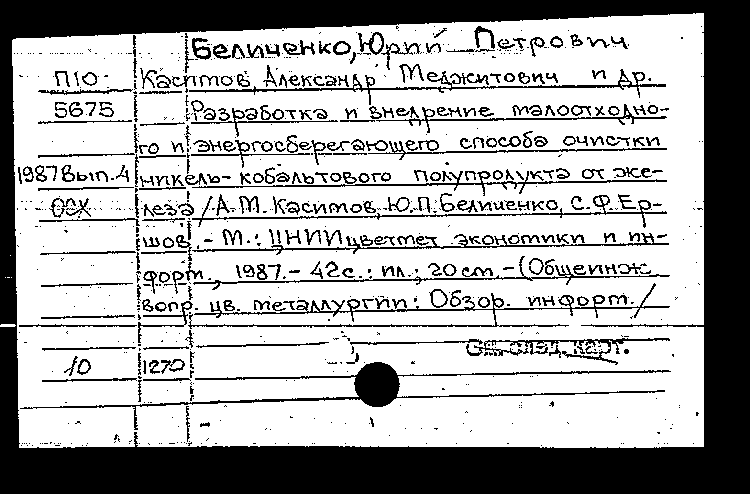 Беличенко, Юрий Петрович
П10 Касимов, Александр Меджитович и др.
5675 Разработка и внедрение малоотходно-
го и энергосберегающего способа очистки
1987 Вып. 4 никель-кобальтового полупродукта от же-
ОЭХ леза / А.М. Касимов, Ю.П. Беличенко, С.Ф. Ер-
шов. - М.: ЦНИИцветмет экономики и ин-
форм., 1987. - 42 с.: ил.; 20 см. - (Общеинж.
вопр. цв. металлургии: Обзор. информ. /
См. след. карт.
10 1270